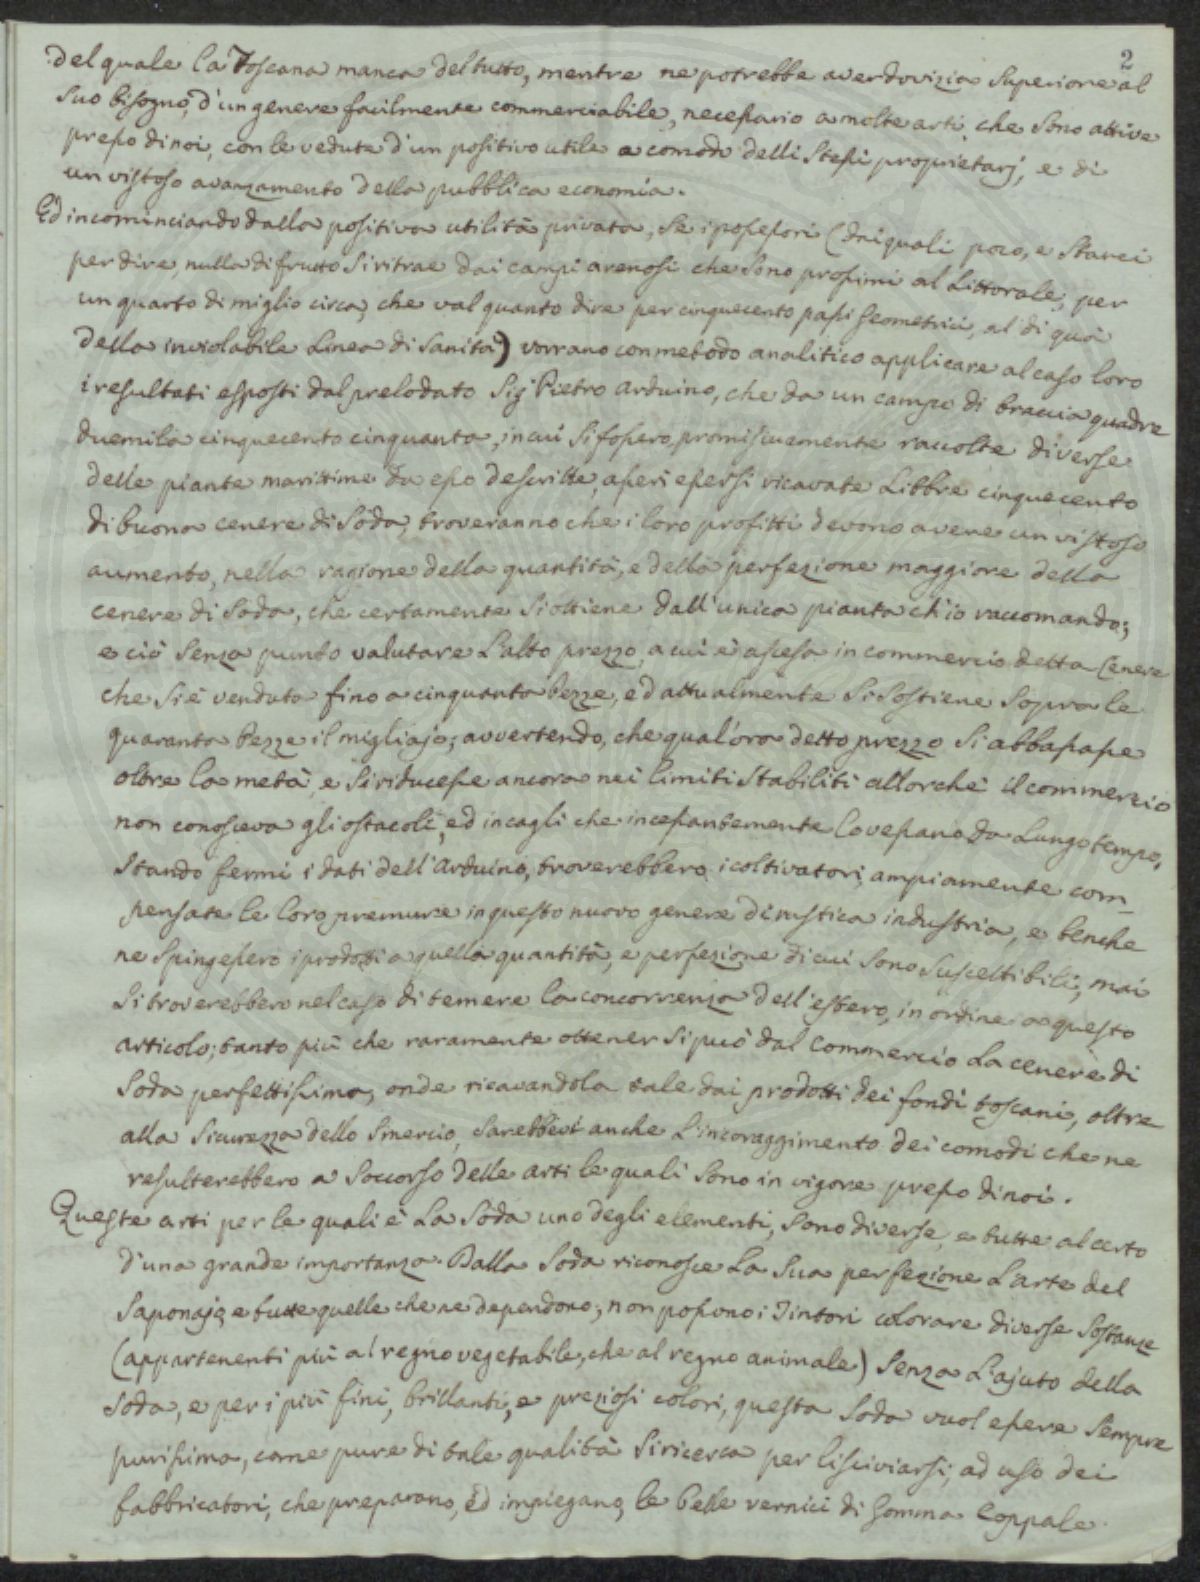 2
del quale la Toscana manca del tutto, mentre ne potrebbe aver dovizia superiore al
suo bisogno, d'un genere facilmente commerciabile, necessario a molte arti, che sono attive
presso di noi, con le vedute d'un positivo utile e comodo delli stessi proprietarj, e di
un vistoso avanzamento della pubblica economia.
Ed incominciando dalla positiva utilità privata, se i possessori (dai quali poco, e starei
per dire, nulla di frutto si ritrae dai campi arenosi che sono prossimi al Littorale, per
un quarto di miglio circa, che val quanto dire per cinquecento passi Geometrici, al di quà
della inviolabile Linea di Sanità) vorrano con metodo analitico applicare al caso loro
i resultati esposti dal prelodato Sig Pietro Arduino, che da un campo di braccia quadre
duemila cinquecento cinquanta, in cui si fossero promiscuamente raccolte diverse
delle piante marittime da esso descritte, asserì essersi ricavate Libbre cinquecento
di buona cenere di Soda, troveranno che i loro profitti devono avere un vistoso
aumento, nella ragione della quantità, e della perfezione maggiore della
cenere di Soda, che certamente si ottiene dall'unica pianta ch'io raccomando;
e ciò senza punto valutare l'alto prezzo, a cui è ascesa in commercio detta Cenere
che si è venduta fino a cinquanta Pezze, ed attualmente si sostiene sopra le
quaranta Pezze il migliajo; avvertendo, che qual'ora detto prezzo si abbassasse
oltre la metà, e si riducesse ancora nei limiti stabiliti allorchè il commercio
non conosceva gli ostacoli, ed incagli che incessantemente lo vessano da Lungo tempo,
Stando fermi i dati dell'Arduino, troverebbero i coltivatori, ampiamente com-
pensate le loro premure in questo nuovo genere di rustica industria, e benche
ne spingessero i prodotti a quella quantità, e perfezione di cui sono suscettibili, mai
si troverebbero nel caso di temere la concorrenza dell'estero, in ordine a questo
articolo; tanto più che raramente ottener si può dal Commercio La cenere di
Soda perfettissima, onde ricavandola tale dai prodotti dei fondi toscani, oltre
alla sicurezza dello smercio, sarebbevi anche l'incoraggimento dei comodi che ne
resulterebbero a soccorso delle arti le quali sono in vigore presso di noi.
Queste arti per le quali è La Soda uno degli elementi, sono diverse, e tutte al certo
d'una grande importanza. Dalla Soda riconosce La Sua perfezione L'arte del
Saponajo, e tutte quelle che ne dependono; non possono i Tintori colorare diverse Sostanze
(appartenenti più al regno vegetabile, che al regno animale) senza L'ajuto della
Soda, e per i più fini, brillanti, e preziosi colori, questa Soda vuol essere sempre
purissima, come pure di tale qualità si ricerca per lisciviarsi, ad uso dei
fabbricatori, che preparano, ed impiegano, le belle vernici di Gomma Coppale.